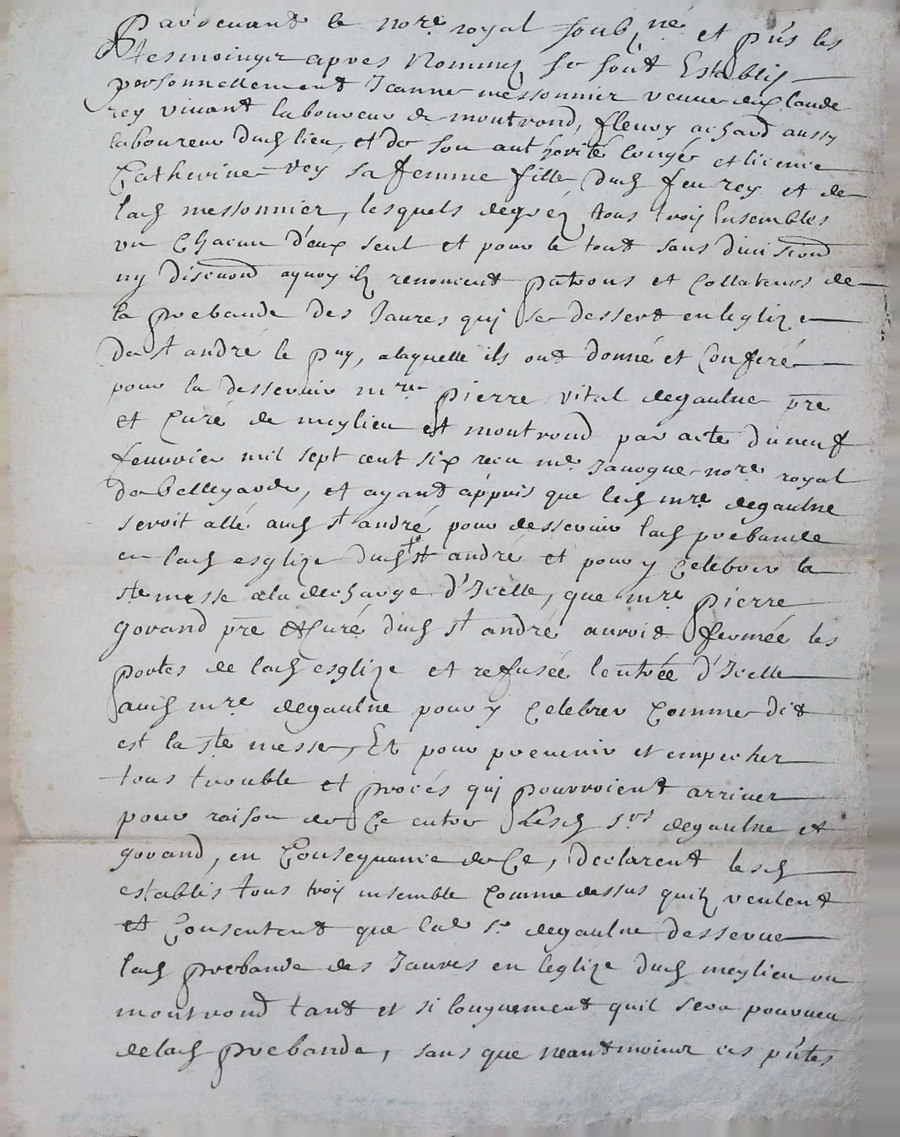 Pardevant le nore royal soubzné et pńs les
tesmoingz apres nommez se sont Establis
personnellement Jeanne messonnier veuve de Claude
rey vivant laboureur de montrond, fleury achard aussy
laboureur dud lieu, et de son authorité congée et licence
Catherine rey sa femme fille dud feu rey et de
lad messonnier, lesquels de gré tous trois Ensembles
un Chacun d'eux seul et pour le tout sans division
ny discution a quoy ilz renoncent patrons et Collateurs de
la prebande des Jaures qui se dessert en leglize
de st andré le puy, a laquelle ils ont donné et Conferé
pour la desservir mre pierre vital degaulne pre
et Curé de meylieu et montrond par acte du neuf
feuvrier mil sept cent six receu me Janogue nore royal
de bellegarde, et ayant appris que led mre degaulne
seroit allé aud st andré pour desservir lad prebande
en lad esglize dud st andré et pour y Celebrer la
ste messe a la descharge d'Icelle, que mre pierre
govand pre et Curé dud st andré auroit fermée les
portes de lad esglize et refusée lentrée d'Icelle
aud mre degaulne pour y Celebrer Comme dit
est la ste messe, Et pour prevenir et empecher
tous trouble et procés qui pourroient arriver
pour raison de Ce entre Lesd srs degaulne et
govand, en Consequance de Ce, Declarent lesd
establis tous trois ensemble Comme dessus quilz veulent
et Consentent que led sr degaulne desserve
lad prebande des Jaures en leglize dud meylieu ou
montrond tant et si longuement quil sera pourveu
de lad prebande, sans que neantmoins ces pńtes